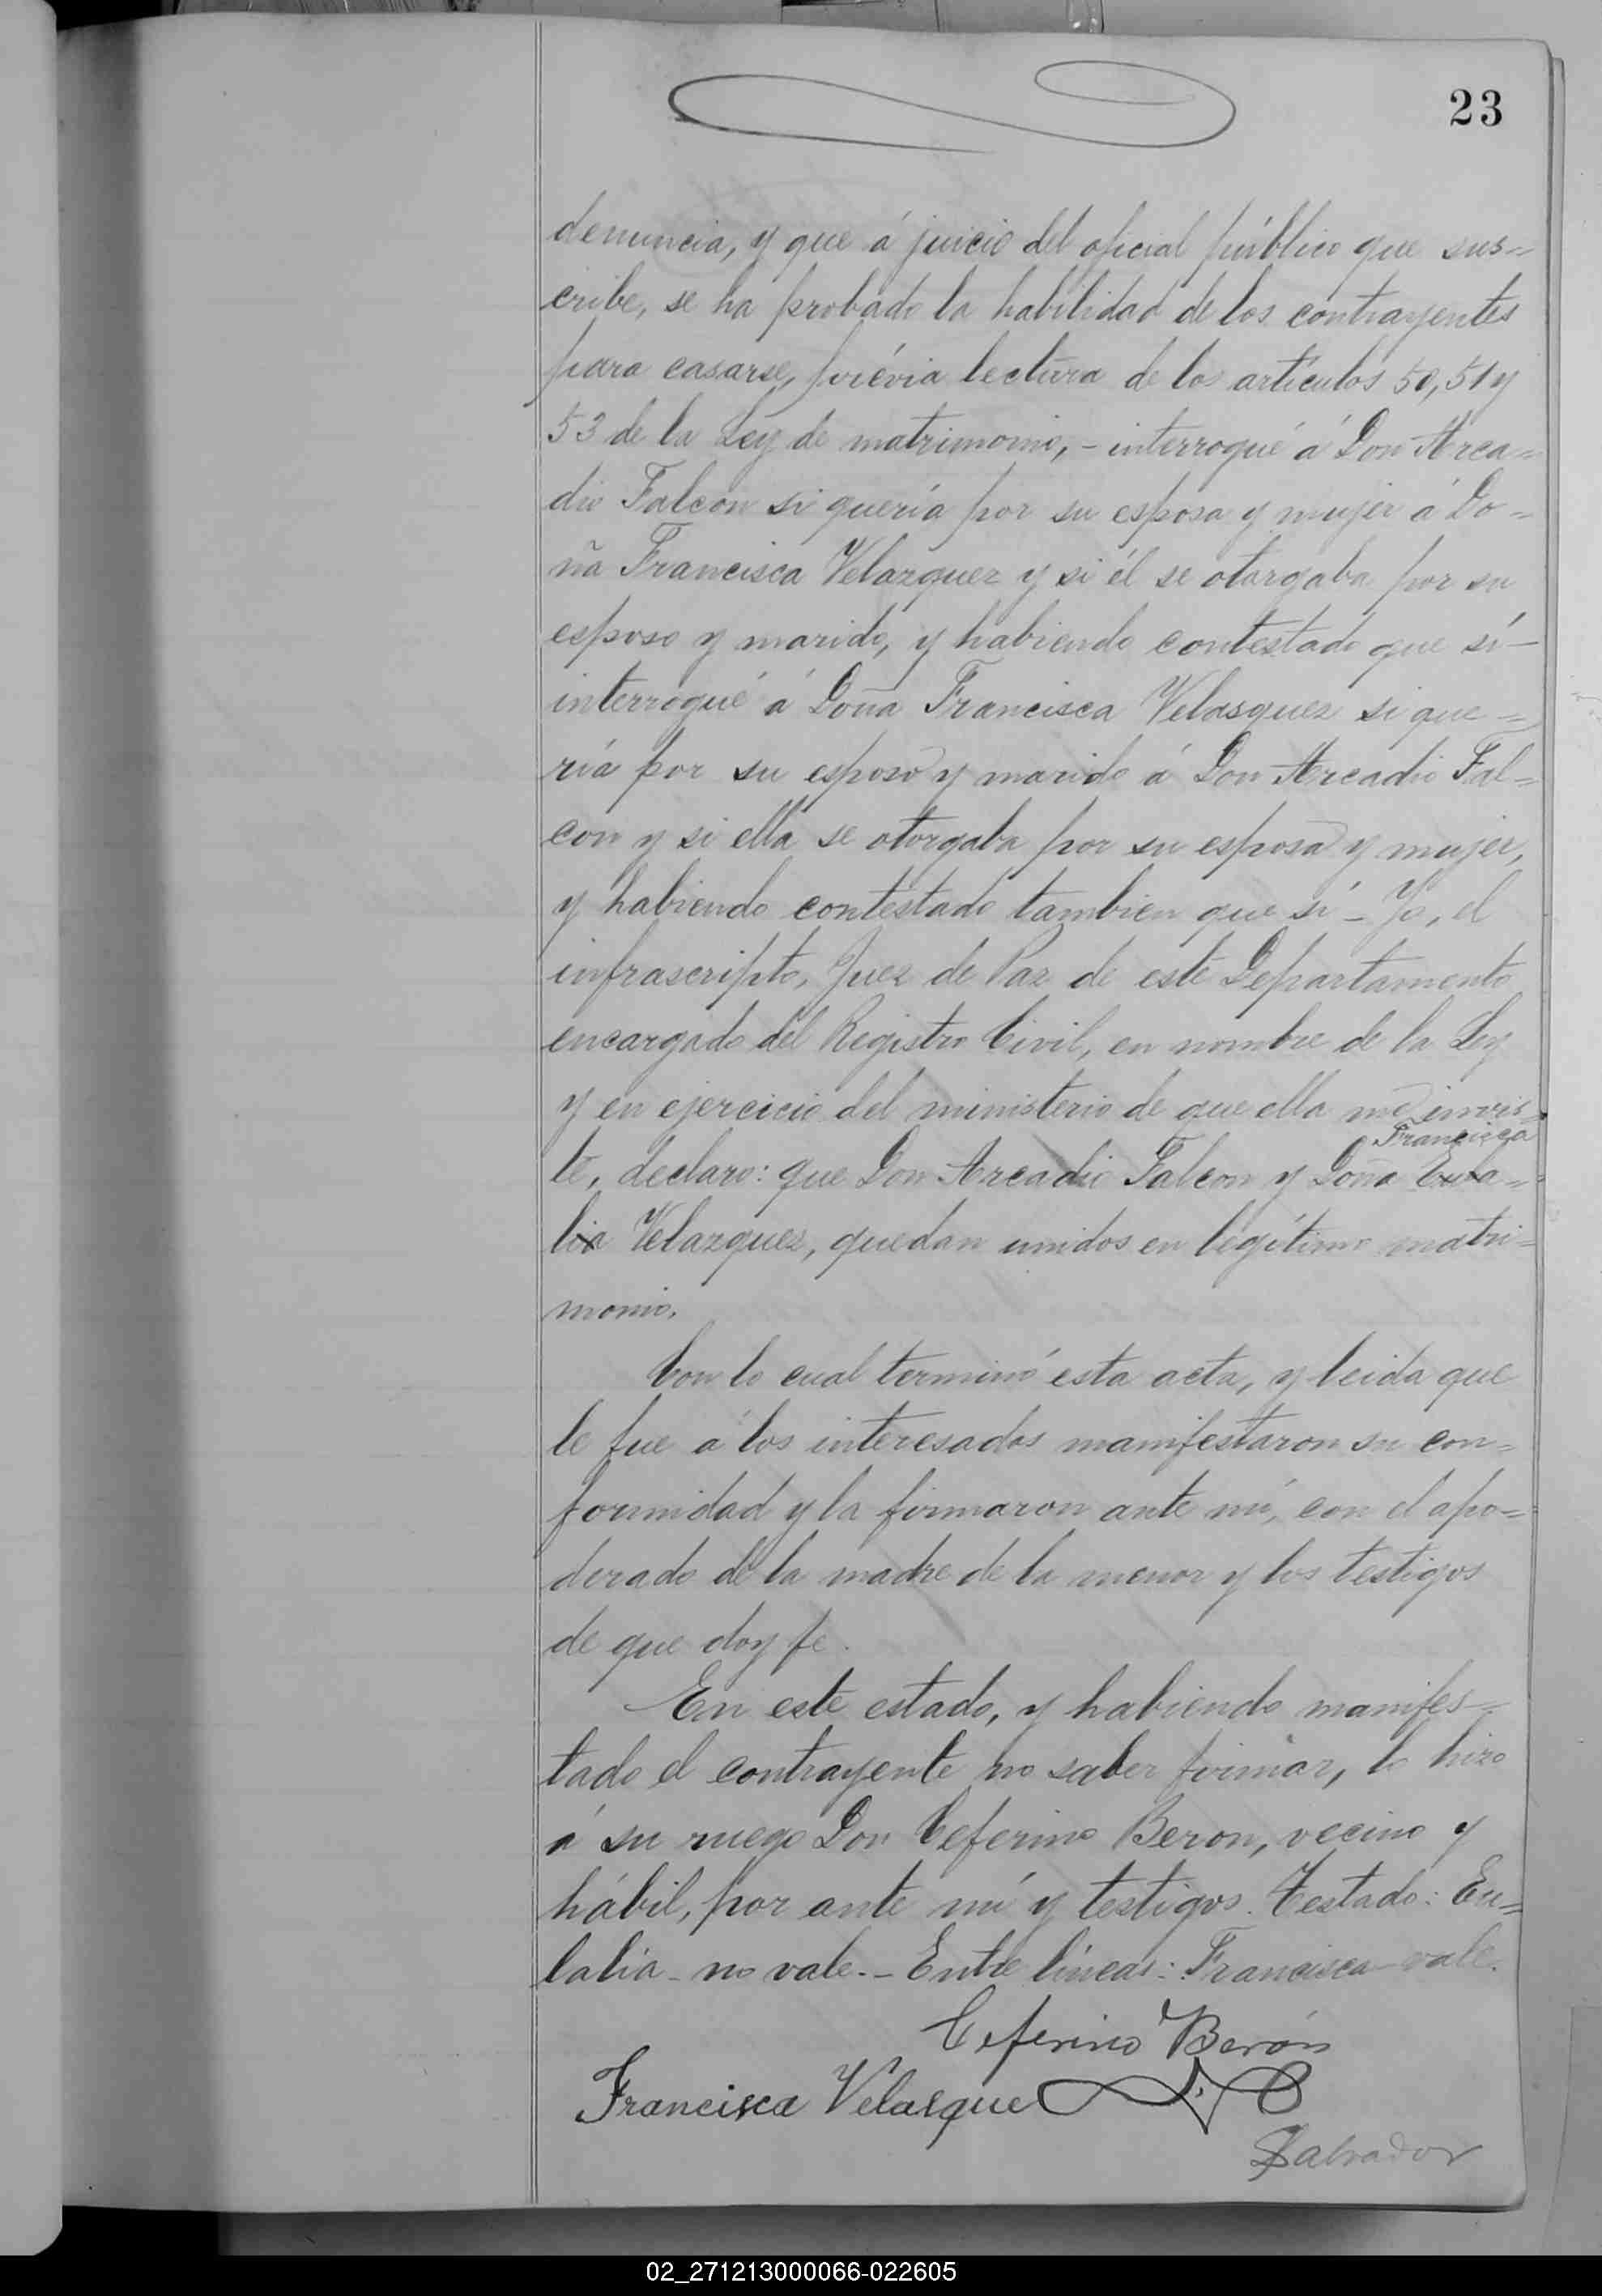 23
denuncia, y que á juicio del oficial público que sus=
cribe, se ha probado la habilidad de los contrayentes
para casarse, prévia lectura de los artículos 50, 51 y
53 de la Ley de matrimonio, - interrogué á Don Arca=
dio Falcon si quería por su esposa y mujer á Do=
ña Francisca Velazquez y si él se otorgaba por su
esposo y marido, y habiendo contestado que sí -
interrogué á Doña Francisca Velasquez si que=
ría por su esposo y marido á Don Arcadio Fal=
con y si ella se otorgaba por su esposa y mujer,
y habiendo contestado tambien que sí - Yo, el
infrascripto, Juez de Paz de este Departamento
encargado del Registro Civil, en nombre de la Ley
y en ejercicio del ministerio de que ella me invis=
Francisca
te, declaro: que Don Arcadio Falcon y Doña Eula=
lia Velazquez, quedan unidos en legítimo matri=
monio.
Con lo cual terminó esta acta, y leida que
le fue á los interesados manifestaron su con=
formidad y la firmaron ante mí, con el apo=
derado de la madre de la menor y los testigos
de que doy fe.
En este estado, y habiendo manifes=
tado el contrayente no saber firmar, lo hizo
á su ruego Don Ceferino Beron, vecino y
hábil, por ante mí y testigos. Testado: Eu=
lalia - no vale. - Entre líneas: Francisca - vale.
Ceferino Berón
Francisca Velasque
Salvador
02_271213000066-022605